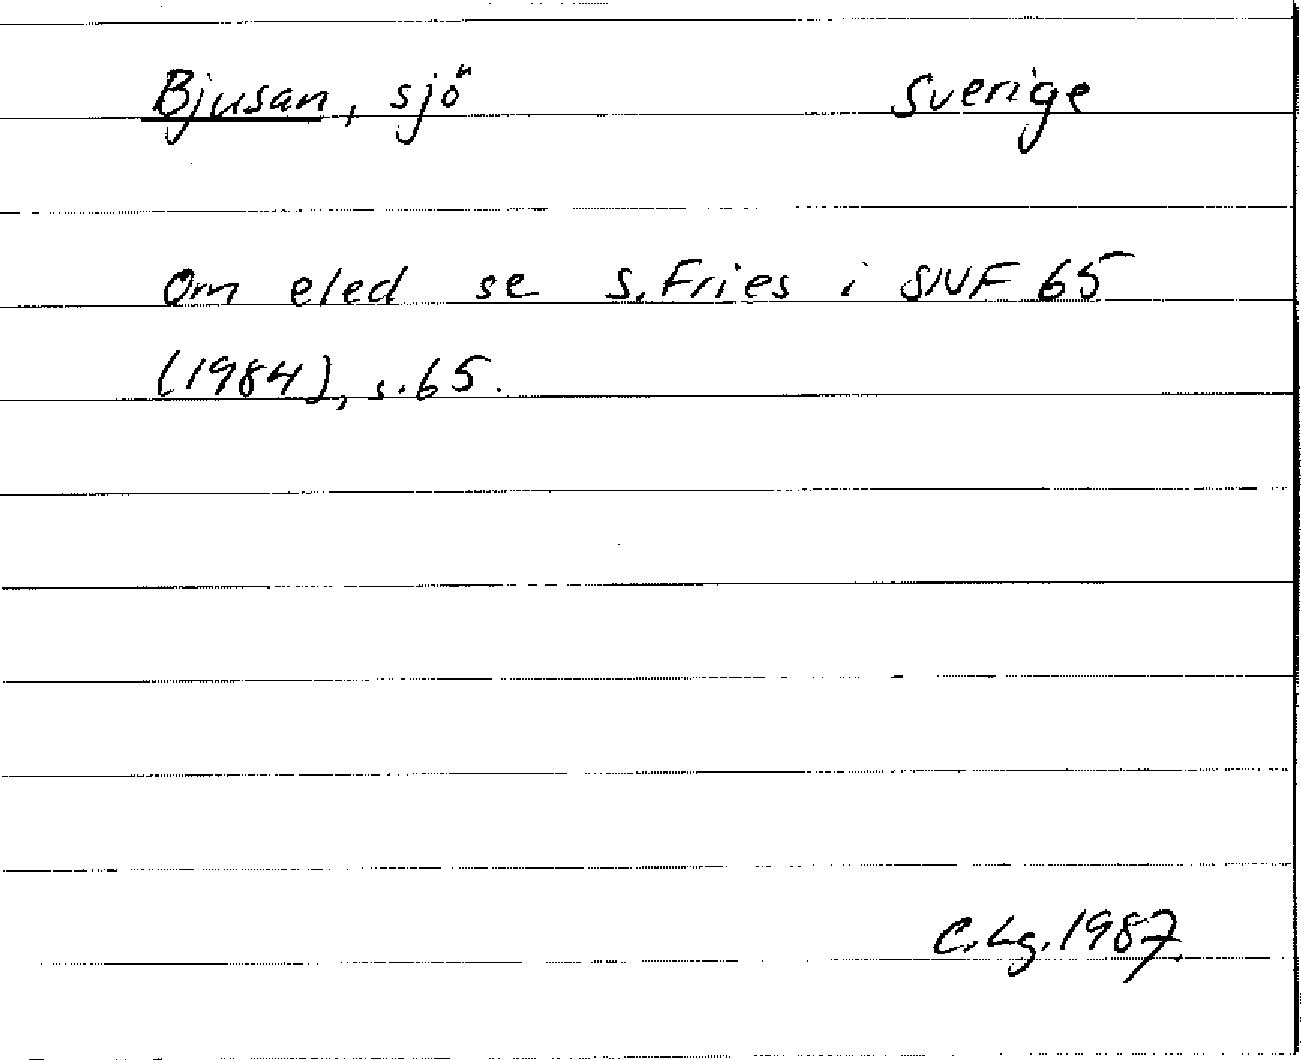 Bjusan, sjö Sverige
Om eled se S. Fries i SNF 65
(1984), s. 65.
C. Lg. 1987.